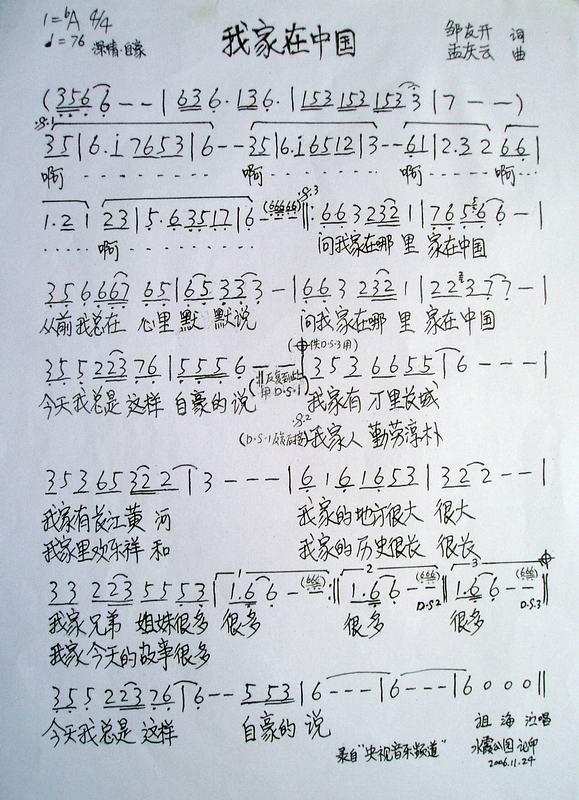 1=bA 4/4
♩=76 深情·自豪
我家在中国
邹友开 词
孟庆云 曲
(3566--|636·136·|153 153 1533|7--)
35|6·i 7653|6--35|6·i6512|3--61|2·32 66|
啊 啊 啊 啊
1·21 23|5·63517|6-(66666)‖:6632321|76566-|
啊 问我家在哪里 家在中国
356667 65|65333-|6632321|22377-|
从前我总在 心里默 默说 问我家在哪里 家在中国
(供D·S·3用)
35522376|55556--- 3536655|6---|
(反复到此用D·S·1)
今天我总是这样 自豪的说 我家有万里长城
(D·S·1反复后接) 我家人 勤劳淳朴
35365322|3---|6161653|322--|
我家有长江黄 河 我家的地方很大 很大
我家里欢乐祥 和 我家的历史很长 很长
33223 5553|1·66-(666):‖1·66-(666)‖1·66-(666)
D·S2 D·S·3
我家兄弟 姐妹很多 很多 很多 很多
我家今天的故事很多
35522376|6--553|6---|6---|6000‖
今天我总是 这样 自豪的 说
祖海 演唱
录自"央视音乐频道"
水霞公园 记印
2006.11.24